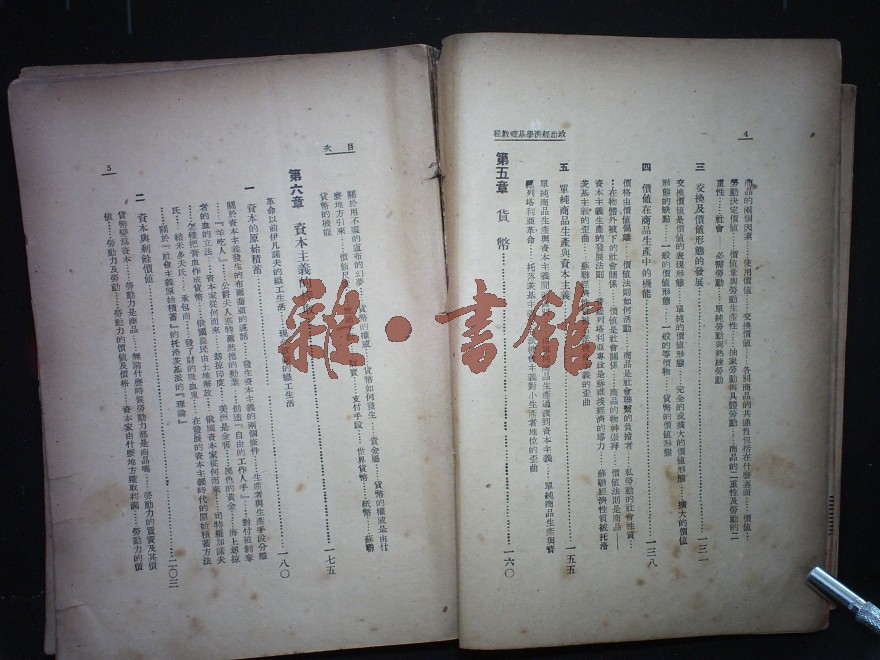 4
政治經濟學基礎教程
商品的兩個因素……使用價值……交換價值……各別商品的共通性包括在什麼裏面……價值……
勞動決定價值……價值量與勞動生產性……抽象勞動與具體勞動……商品的二重性及勞動的二
重性……社會 必需勞動……單純勞動與熟練勞動
三 交換及價值形態的發展……一三一
交換價值是價值的表現形態……單純的價值形態……完全的或擴大的價值形態……擴大的價值
形態的缺點……一般的價值形態……一般的等價物……貨幣的價值形態
四 價值在商品生產中的機能……一三八
價格由價值偏離……價值法則如何活動……商品是社會聯繫的負擔者……私勞動的社會性質……
在物體外被下的社會關係……價值是社會關係……商品的物神崇拜……價值法則是商品——
資本主義生產的發展法則……普列塔利亞專政是蘇維埃經濟的導力……蘇聯經濟性質被托洛
茨基主義的歪曲……蘇聯經濟
主義的歪曲
五 單純商品生產與資本主義……一五五
單純商品生產與資本主義間
單純商品生產過渡到資本主義……單純商品生產與普
列塔利亞革命……托洛茨基主義
機會主義對小生產者地位的歪曲
第五章 貨幣……一六〇
目次
5
關於用不壞的盧布的幻夢……貨幣的權威……貨幣如何發生……貴金屬……貨幣的權威是由什
麼地方引來……價值尺
財寶……支付手段……世界貨幣……紙幣……蘇聯
貨幣的機能……一七五
第六章 資本主義的
革命以前伊凡諾夫的織工生活……現
的織工生活
一 資本的原始積蓄……一八〇
關於資本主義發生的布爾喬亞的謊話……發生資本主義的兩個條件……生產者與生產手段分離
……「羊吃人」……公爵夫人塞特爾然德的勳業……創造「自由的工作人手」……對付被剝奪
者的血的立法……資本家從何而來……劫掠印度……美洲是金窖……黑色的黃金……海上劫掠
……怎樣把膏血作成貨幣……俄國農民由土地解放……俄國資本家從何而來……司特羅加諾夫
氏……結米多夫氏……承包商……發了財的吸血鬼……在發展的資本主義時代的原始積蓄方法
……關於「社會主義原始積蓄」的托洛茨基派的「理論」
二 資本與剩餘價值……二〇三
貨幣變爲資本……勞動力是商品……無論什麼時候勞動力都是商品嗎……勞動力的買賣及其價
值……勞動力及勞動……勞動力的價值及價格……資本家由什麼地方獲取利潤……勞動力的價
雅·書館